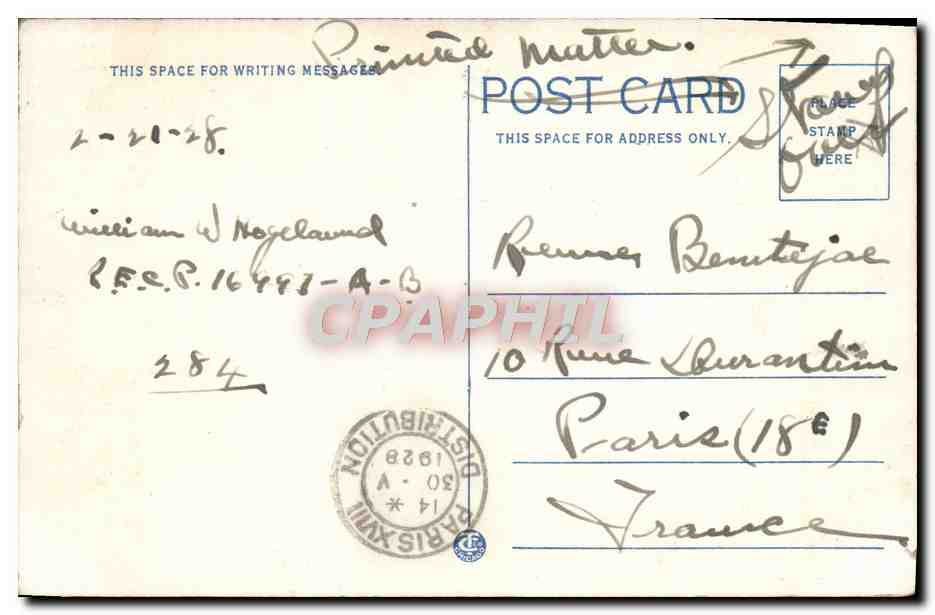 Printed Matter.
THIS SPACE FOR WRITING MESSAGES
POST CARD
THIS SPACE FOR ADDRESS ONLY.
PLACE
STAMP
HERE
Stamp
2-21-28.
William W Hogeland
284
10 Rue
Paris (18E)
France
CPAPHIL
PARIS XVIII
14 * 30 · V
1928
DISTRIBUTION